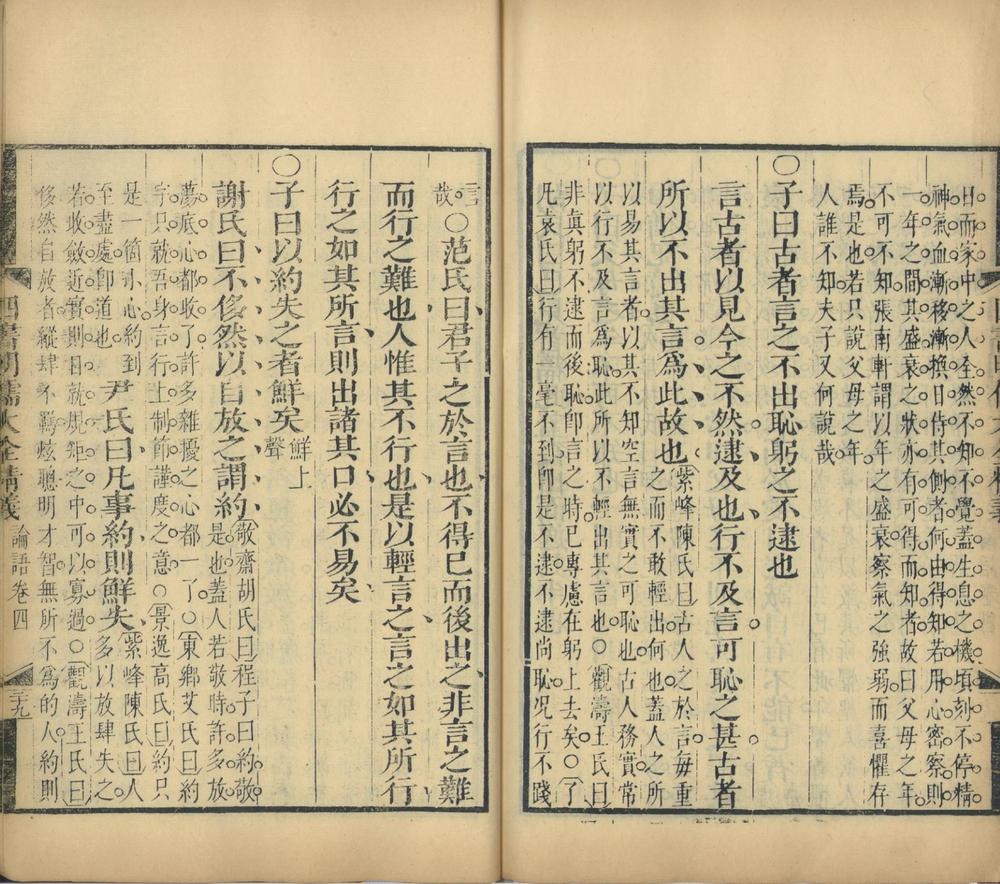 日而家中之人全然不知不覺蓋生息之機頃刻不停精
神氣血漸移漸換日侍其側者何由得知若用心密察則
一年之間其盛衰之狀亦有可得而知者故曰父母之年
不可不知張南軒謂以年之盛衰察氣之強弱而喜懼存
焉是也若只說父母之年
人誰不知夫子又何說哉
○子曰古者言之不出恥躬之不逮也
言古者以見今之不然逮及也行不及言可恥之甚古者
所以不出其言爲此故也
紫峰陳氏曰古人之於言毋重
之而不敢輕出何也蓋人之所
以易其言者以其不知空言無實之可恥也古人務實常
○以行不及言爲恥此所以不輕出其言也○觀濤王氏曰
非真躬不逮而後恥卽言之時已專慮在躬上去矣○了
凡袁氏曰行有一毫不到卽是不逮不逮尚恥况行不踐
言
哉
○范氏曰君子之於言也不得已而後出之非言之難
而行之難也人惟其不行也是以輕言之言之如其所行
行之如其所言則出諸其口必不易矣
○子曰以約失之者鮮矣
鮮上
聲
謝氏曰不侈然以自放之謂約
敬齋胡氏曰程子曰約敬
是也蓋人若敬時許多放
蕩底心都收了許多雜擾之心都一了○東鄉艾氏曰約
字只就吾身言行上制節謹度之意○景逸高氏曰約只
是一箇小心約到
至盡處卽道也
尹氏曰凡事約則鮮失
紫峰陳氏曰人
多以放肆失之
若收斂近實則日就規矩之中可以寡過○觀濤王氏曰
侈然自放者縱肆不羈炫聰明才智無所不爲的人約則
四書明儒大全精義
論語卷四
三十九